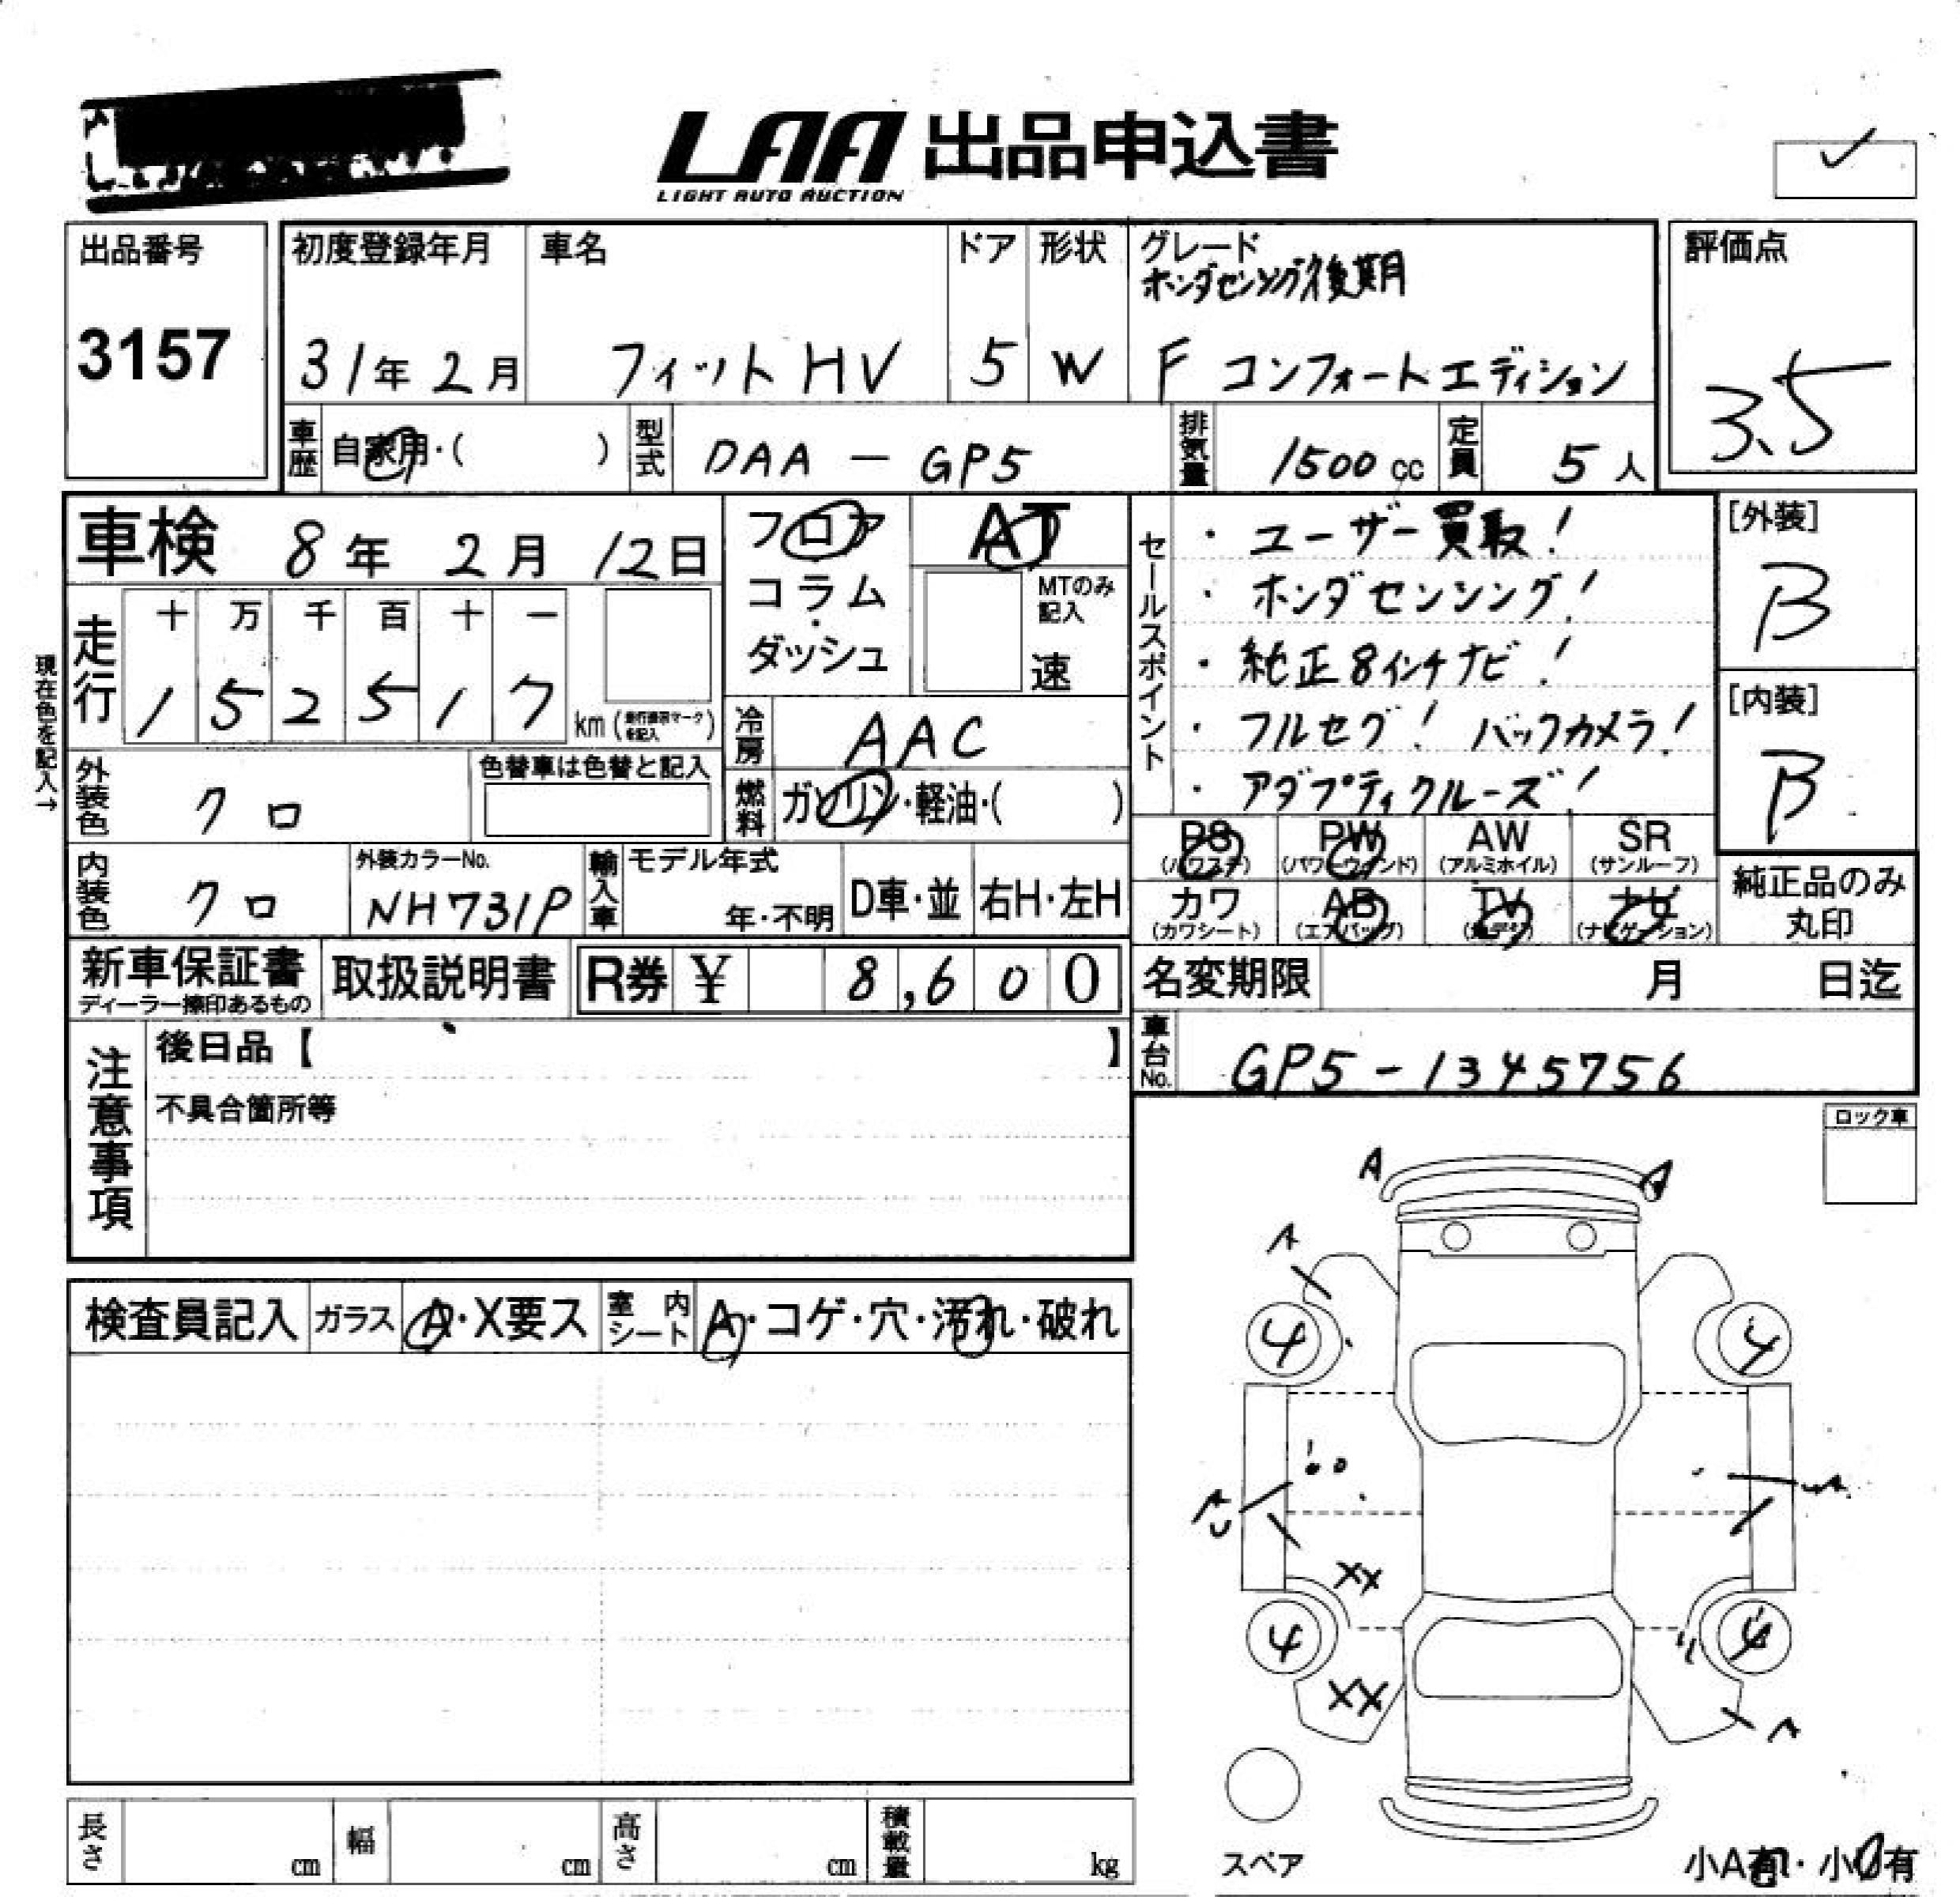 LAA 出品申込書
LIGHT AUTO AUCTION
出品番号
3157
初度登録年月
31年 2月
車名
フィット HV
ドア
5
形状
W
グレード
ホンダセンシング後期
F コンフォートエディション
評価点
3.5
車歴
自家用・( )
型式
DAA - GP5
排気量
1500 cc
定員
5 人
車検 8年 2月 12日
フロア
コラム・
ダッシュ
AT
MTのみ
記入
速
セールスポイント
・ユーザー買取!
・ホンダセンシング!
・純正8インチナビ!
・フルセグ! バックカメラ!
・アダプティクルーズ!
[外装]
B
[内装]
B
現在色を記入→
走行
十 万 千 百 十 一
1 5 2 5 1 7
km
冷房
AAC
外装色
クロ
色替車は色替と記入
燃料
ガソリン・軽油・( )
PS
(パワステ)
PW
(パワーウィンド)
AW
(アルミホイル)
SR
(サンルーフ)
カワ
(カワシート)
AB
(エアバック)
TV
ナビ
(ナビゲーション)
純正品のみ
丸印
内装色
クロ
外装カラーNo.
NH731P
輸入車
モデル年式
年・不明
D車・並
右H・左H
新車保証書
取扱説明書
R券 ¥ 8,600
名変期限 月 日迄
注意事項
後日品【 】
不具合箇所等
車台No.
GP5-1345756
ロック車
検査員記入
ガラス
A・X要ス
室内
シート
A・コゲ・穴・汚れ・破れ
A A
A
4 4
A
XX
4 4
XX
A
スペア
長さ cm
幅 cm
高さ cm
積載量 kg
小A有・小U有